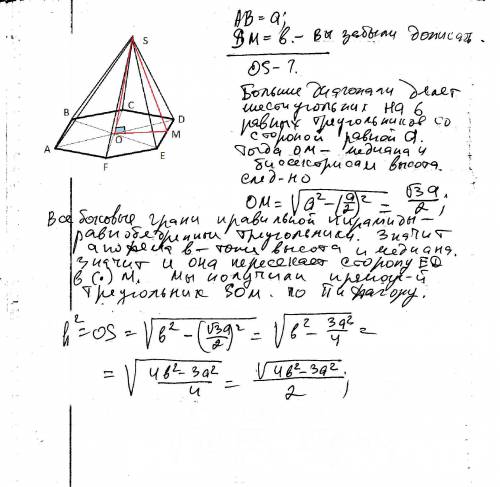 AB = a;
BM = в. - Вы забыли дописать.
OS - ?
S
B
C
D
A
O
M
F
E
Большие диагонали делят
шестиугольник на 6
равных треугольников со
стороной равной a.
Тогда OM - медиана и
биссектриса и высота.
след-но
OM = √(a² - (a/2)²) = √3a/2;
Все боковые грани правильной пирамиды -
равнобедренные треугольники. Значит
апофема в - тоже высота и медиана.
Значит и она пересекает сторону ED
в (·) M. Мы получили прямоуг-й
треугольник SOM. По Пифагору.
h² = OS = √(в² - (√3a/2)²) = √(в² - 3a²/4) =
= √((4в² - 3a²)/4) = √(4в² - 3a²)/2;